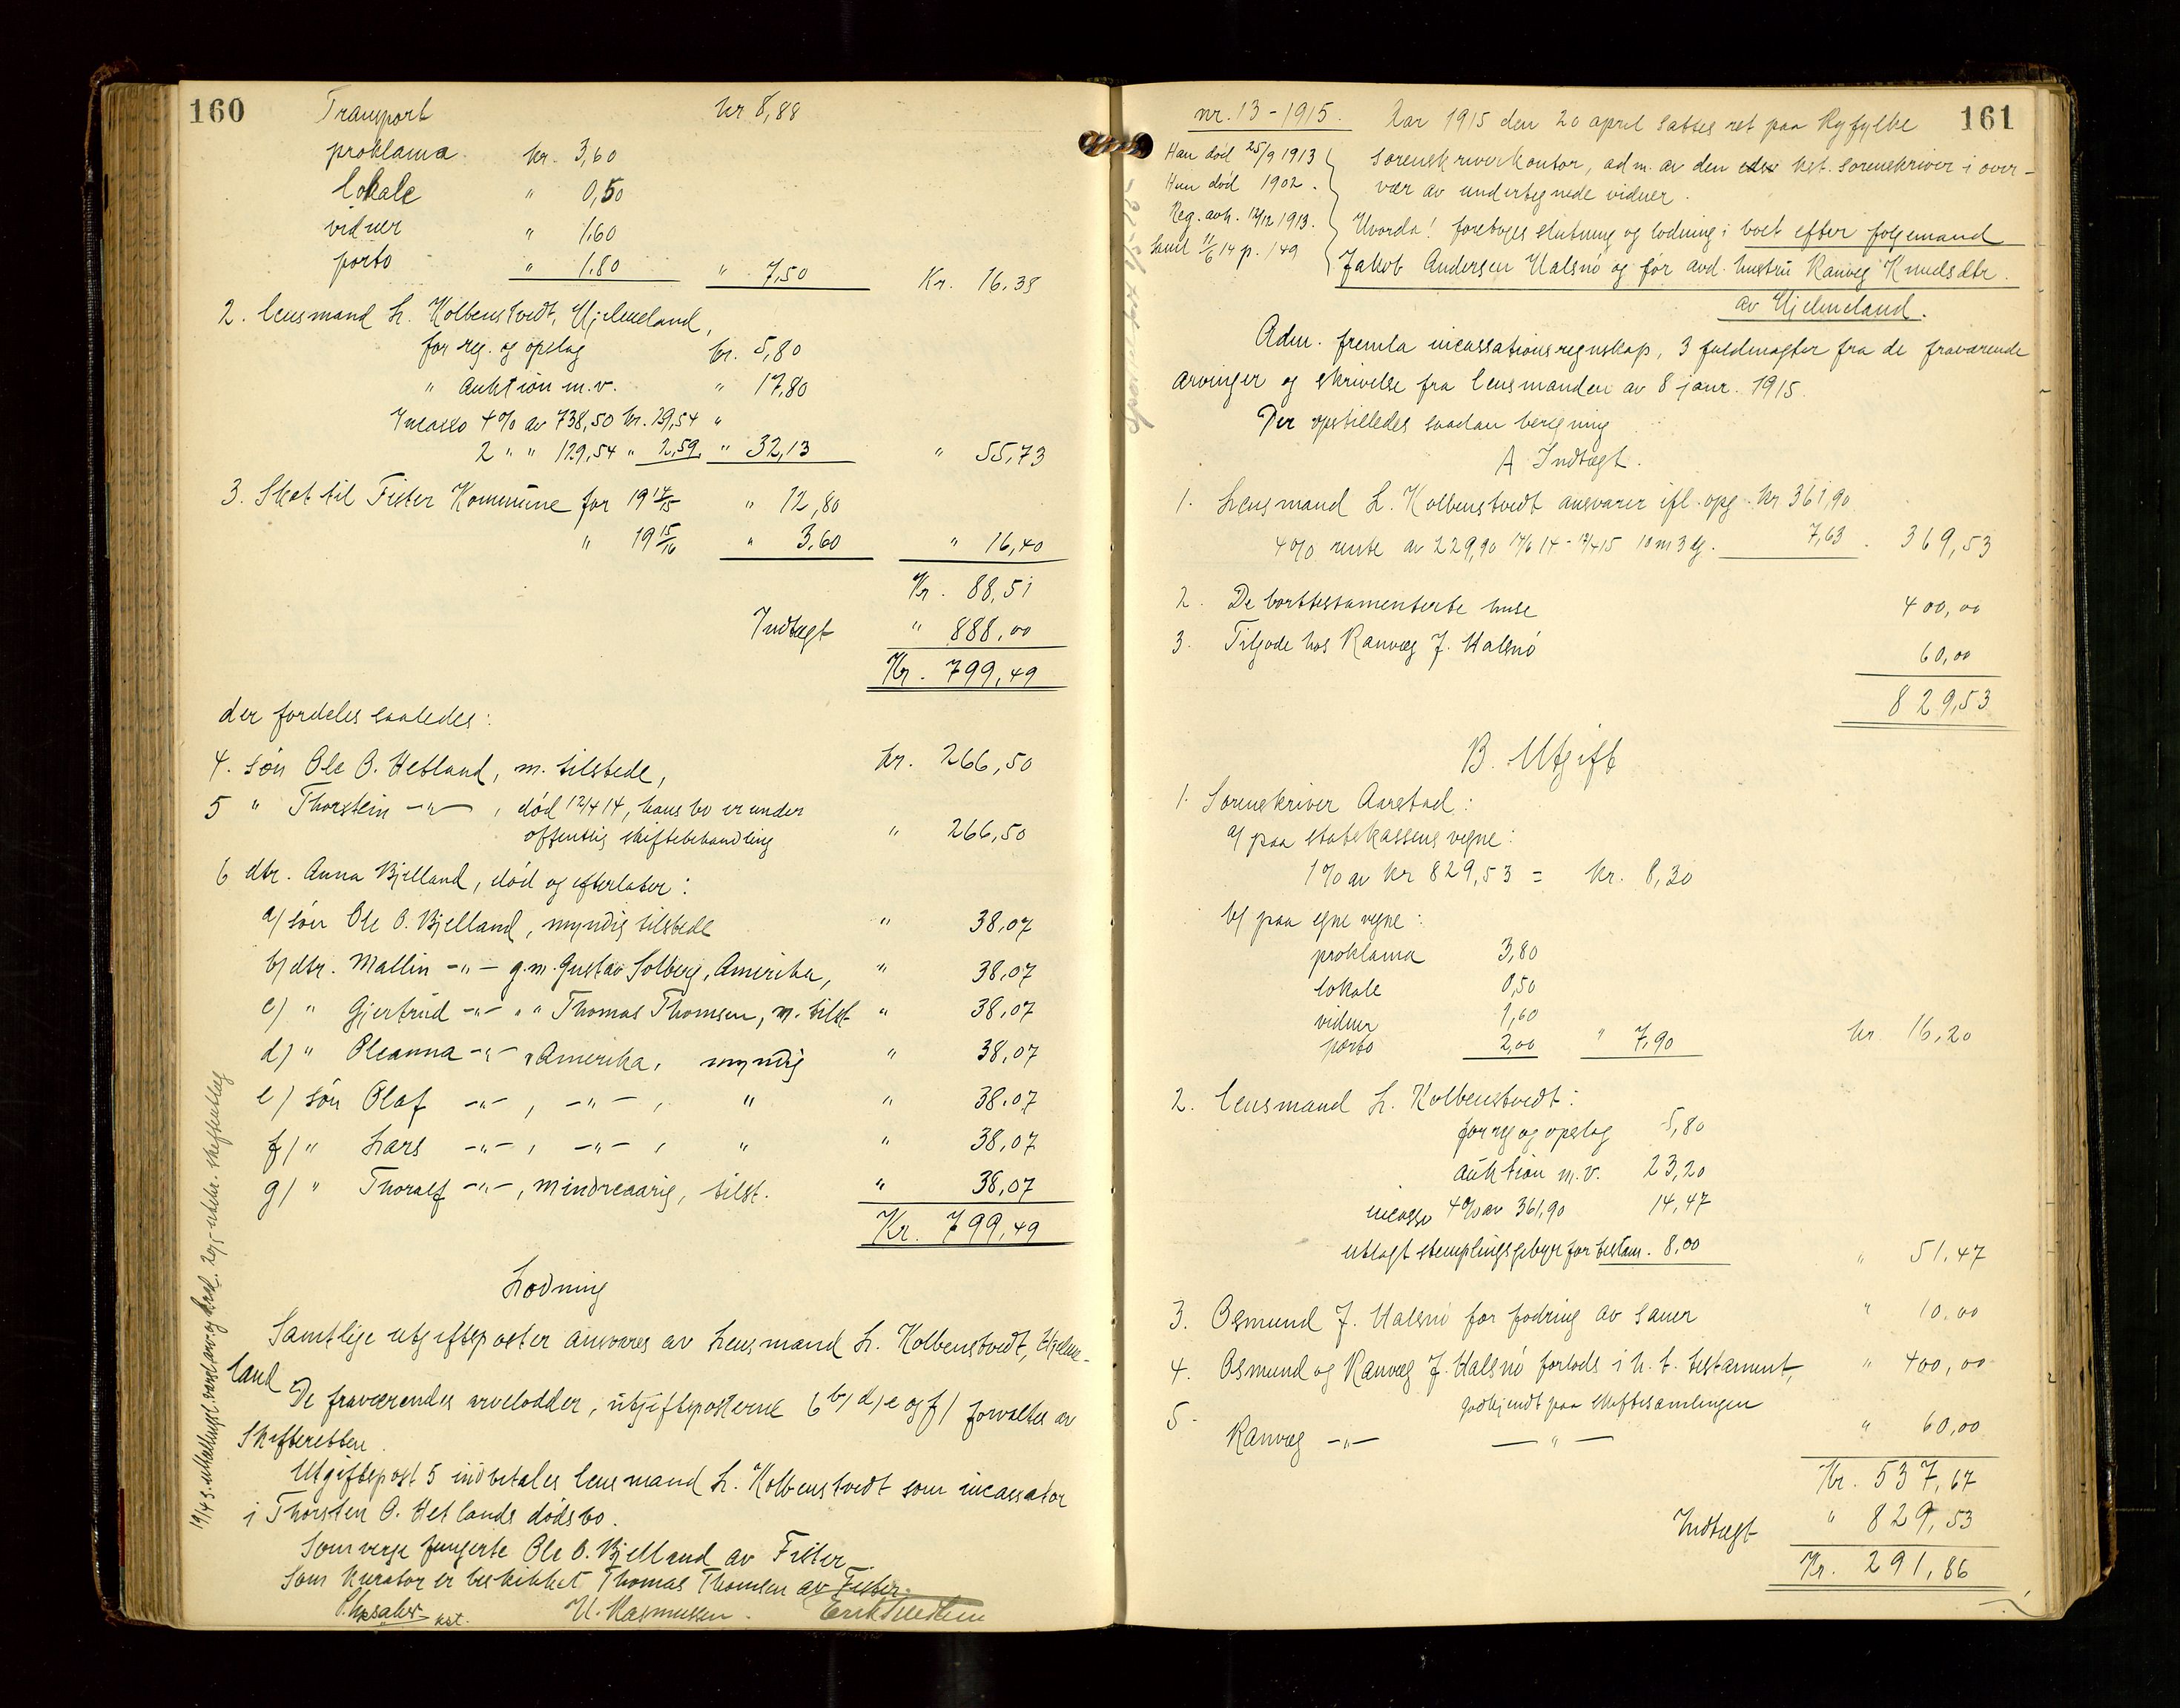 160
Transport kr 8,88
proklama kr. 3,60
lokale " 0,50
vidner " 1.60
porto " 1.80 " 7,50 Kr. 16.38
2. lensmand L. Kolbenstvedt, Hjelmeland,
for reg. og opslag kr. 5,80
" Auktion m.v. " 17,80
Incasso 4% av 738,50 kr. 29,54 "
2 " " 129,54 " 2,59 " 32,13 " 55,73
3. Skat til Fister Kommune for 19 14/15 " 12,80
" 19 15/16 " 3,60 " 16,40
Kr. 88,51
Indtægt " 888,00
Kr. 799,49
der fordeles saaledes:
4. søn Ole O. Hetland, m. tilstede, kr. 266,50
5 " Thorstein -"- , død 12/4 14, hans bo er under
offentlig skiftebehandling " 266,50
6 dtr. Anna Bjelland, død og efterlater:
a/ søn Ole O. Bjelland, myndig tilstede " 38,07
b/ dtr. Mallin -"- g.m. Gustav Solberg, Amerika, " 38,07
c) " Gjertrud -"- " " Thomas Thomsen, m. tilst " 38,07
d) " Oleanna -"- , Amerika, myndig " 38,07
e) søn Olaf -"- , -"- , " " 38,07
f) " Lars -"- , -"- , " " 38,07
g) " Thoralf -"- , mindreaarig, tilst. " 38,07
Kr. 799,49
Lodning
Samtlige utgiftsposter ansvares av Lensmand L. Kolbenstvedt, Hjelme-
land
De fraværendes arvelodder, utgiftsposterne 6 b/ d/ e og f/ forvaltes av
Skifteretten.
Utgiftspost 5 indbetales lensmand L. Kolbenstvedt som incassator
i Thorsten O. Hetlands dødsbo.
Som verge fungerte Ole O. Bjelland av Fister
Som kurator er beskikket Thomas Thomsen av Fister.
kst. H. Rasmussen.
161
nr. 13-1915. Aar 1915 den 20 april sattes ret paa Ryfylke
sorenskriverkontor, adm. av den kst. sorenskriver i over-
vær av undertegnede vidner.
Han død 25/9 1913
Hun død 1902.
Reg. avh. 12/12 1913.
Saml 11/6 14 p. 149
Hvorda! foretoges slutning og lodning i boet efter følgemand
Jakob Andersen Halsnø og før avd. hustru Ranveg Knudsdtr.
av Hjelmeland.
Adm. fremla incassationsregnskap, 3 fuldmagter fra de fraværende
arvinger og skrivelse fra lensmanden av 8 janr. 1915.
Der opstilledes saadan beregning
A Indtægt.
1. Lensmand L. Kolbenstvedt ansvarer ifl. opg. kr 361,90
4% rente av 229,90 17/6 14 - 17/4 15 10 m 3 dg. 7,63 . 369,53
2. De borttestamenterte huse 400,00
3. Tilgode hos Ranveg J. Halsnø 60,00
829,53
B. Utgift
1. Sorenskriver Aarstad:
a/ paa statskassens vegne:
1% av kr 829,53 = kr. 8,30
b/ paa egne vegne:
proklama 3,80
lokale 0,50
vidner 1,60
porto 2,00 " 7,90 kr 16,20
2. lensmand L. Kolbenstvedt:
for reg og opslag 5,80
auktion m.v. 23,20
incasso 4% av 361,90 14,47
utlagt stemplingsgebyr for testam. 8,00 " 51,47
3. Osmund J. Halsnø for fodring av sauer " 10,00
4. Osmund og Ranveg J. Halsnø forlods i h. t. testament, " 400,00
godkjendt paa skiftesamlingen
5. Ranveg -"- -"- " 60,00
Kr. 537,67
Indtægt " 829,53
Kr. 291,86